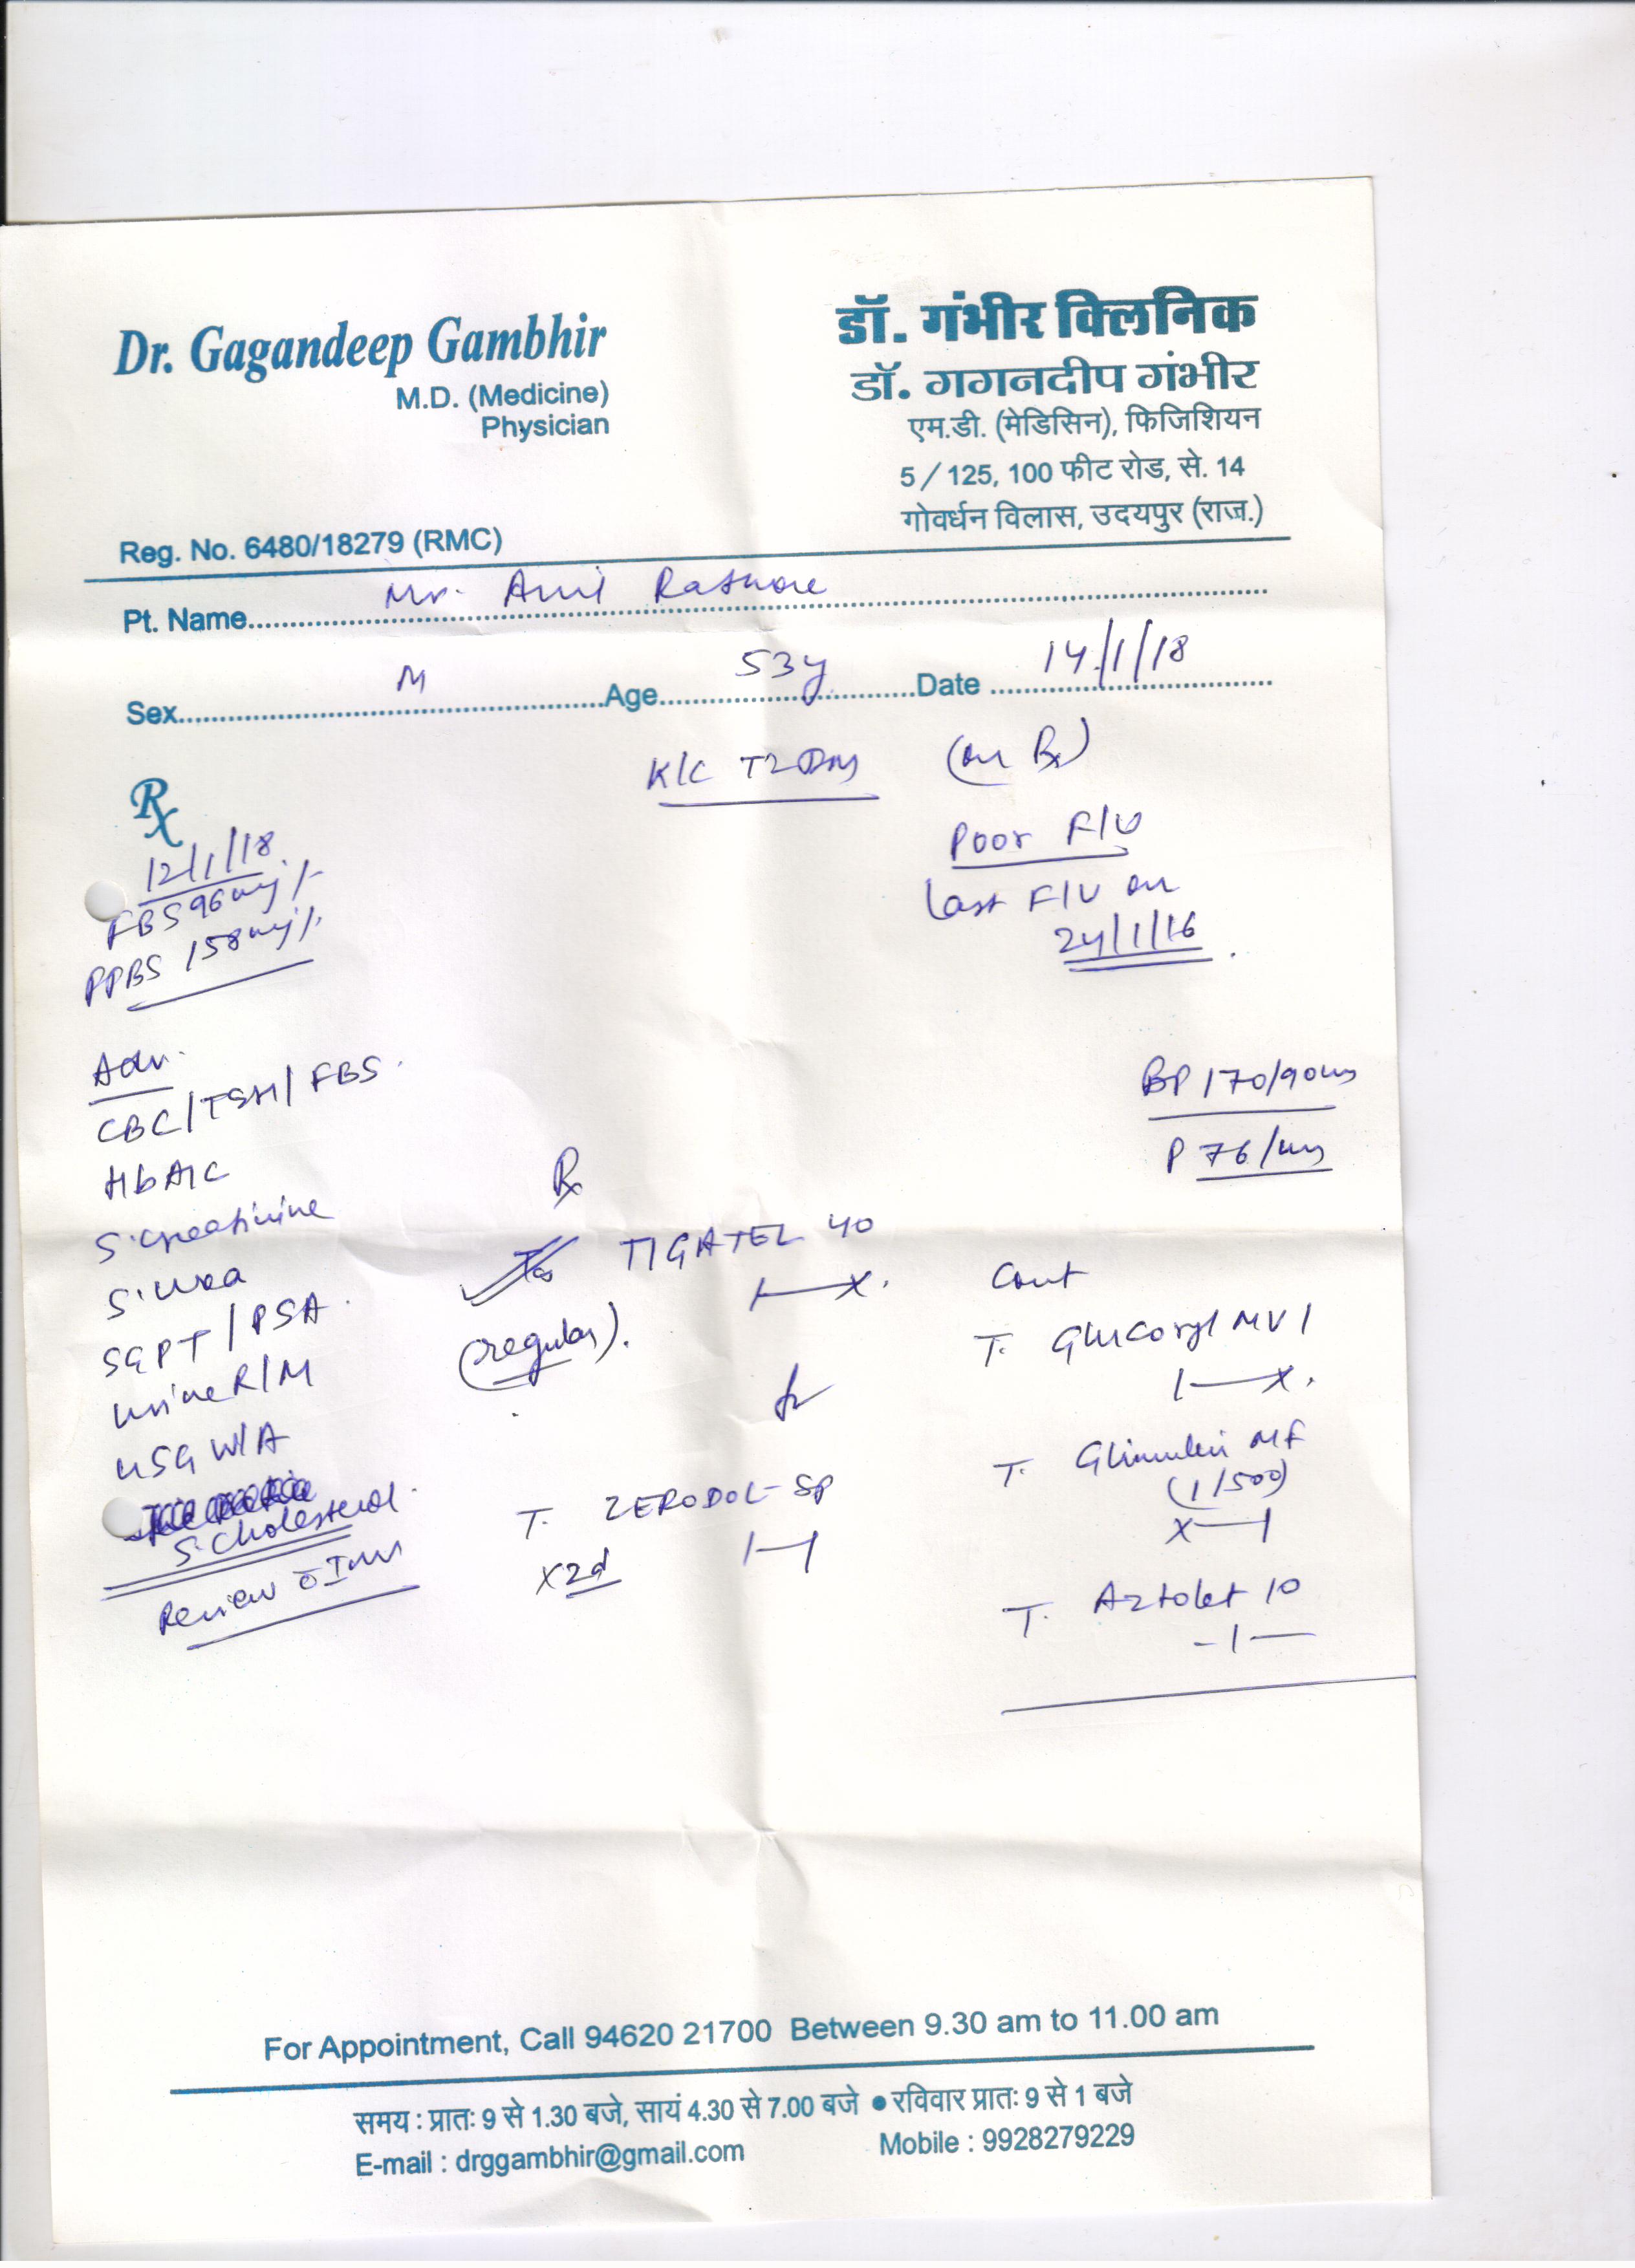 Dr. Gagandeep Gambhir
M.D. (Medicine)
Physician
Reg. No. 6480/18279 (RMC)
डॉ. गंभीर क्लिनिक
डॉ. गगनदीप गंभीर
एम.डी. (मेडिसिन), फिजिशियन
5 / 125, 100 फीट रोड, से. 14
गोवर्धन विलास, उदयपुर (राज.)
Pt. Name Mr. Anil Rathore
Sex M Age 53y Date 14/1/18
K/C T2DM (on Rx)
Poor F/U
Last F/U on
24/1/16
Rx
12/1/18
FBS 96 mg/.
PPBS 158 mg/.
Adv.
CBC/TSH/FBS.
HbA1C
S. creatinine
S. urea
SGPT/PSA.
urine R/M
USG W/A
S. Cholesterol.
Review c Inv
BP 170/90
P 76/
Rx
TIGATEL 40
1—x.
(regular).
T. ZERODOL-SP
x2d 1—1
Cont
T. Glucoryl MV 1
1—x.
T. MF
(1/500)
x—1
T. Aztolet 10
-1—
For Appointment, Call 94620 21700 Between 9.30 am to 11.00 am
समय : प्रातः 9 से 1.30 बजे, सायं 4.30 से 7.00 बजे ● रविवार प्रातः 9 से 1 बजे
E-mail : drggambhir@gmail.com Mobile : 9928279229